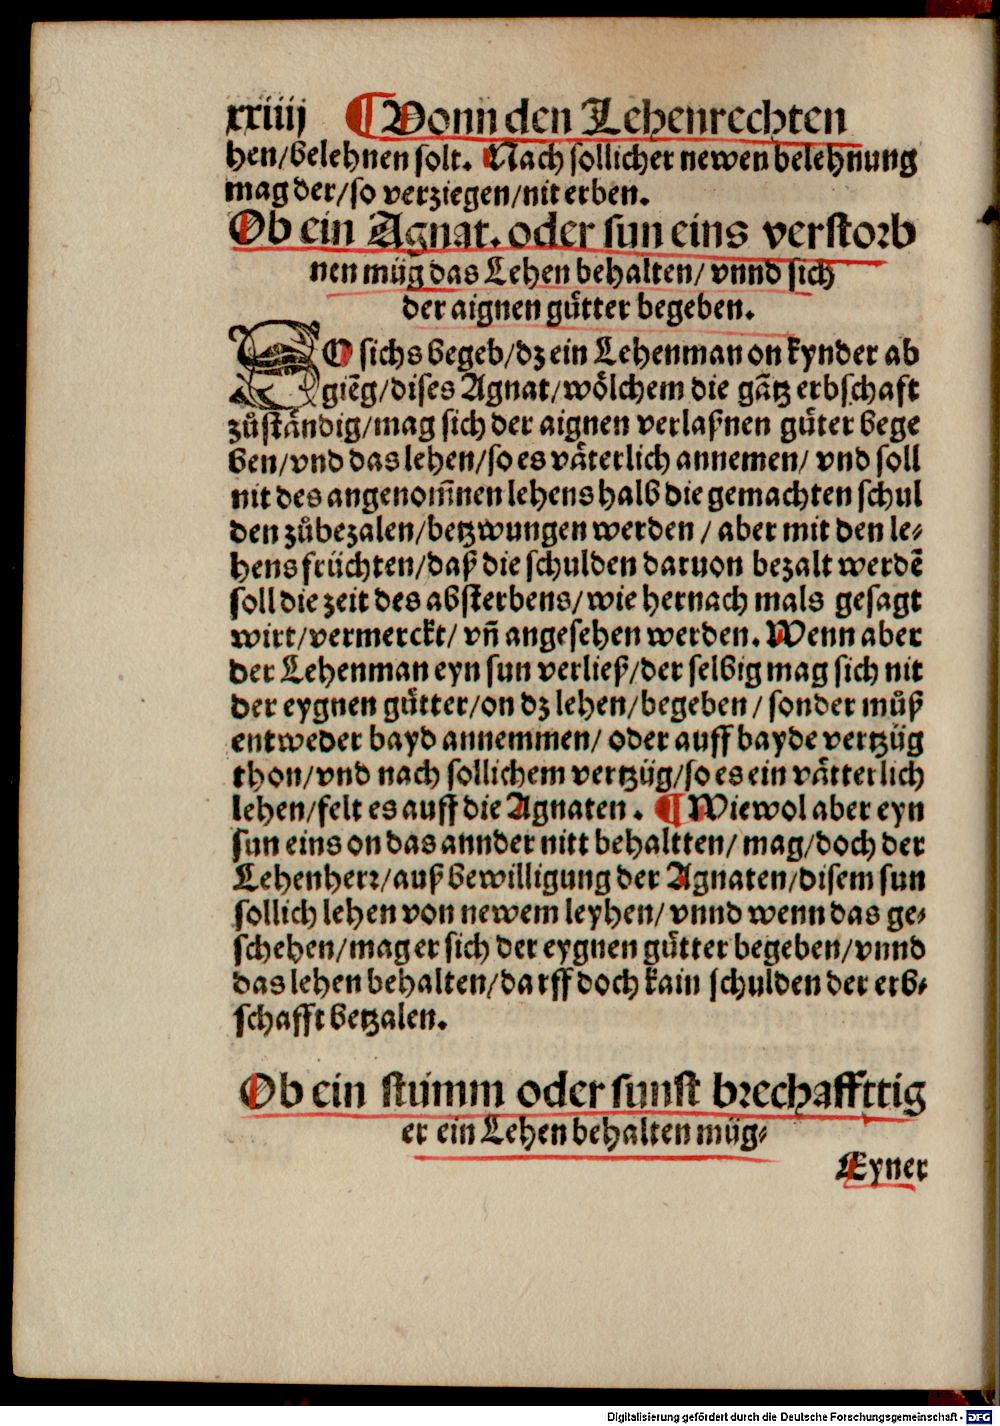 xxiiij ¶ Vonn den Lehenrechten
hen/belehnen solt. Nach sollicher newen belehnung
mag der/so verziegen/nit erben.
Ob ein Agnat. oder sun eins verstorb
nen müg das Lehen behalten/ vnnd sich
der aignen gůtter begeben.
SO sichs begeb/dz ein Lehenman on kynder ab
giēg/dises Agnat/wölchem die gātz erbschaft
zůständig/mag sich der aignen verlaßnen gůter bege
ben/vnd das lehen/so es väterlich annemen/ vnd soll
nit des angenom̄nen lehens halb die gemachten schul
den zůbezalen/betzwungen werden / aber mit den le⸗
hens früchten/daß die schulden daruon bezalt werdē
soll die zeit des absterbens/wie hernach mals gesagt
wirt/vermerckt/ vñ angesehen werden. Wenn aber
der Lehenman eyn sun verließ/der selbig mag sich nit
der eygnen gůtter/on dz lehen/begeben/ sonder můß
entweder bayd annemmen/ oder auff bayde vertzüg
thon/vnd nach sollichem vertzüg/so es ein vätterlich
lehen/felt es auff die Agnaten. ¶ Wiewol aber eyn
sun eins on das annder nitt behaltten/ mag/doch der
Lehenherr/auß bewilligung der Agnaten/disem sun
sollich lehen von newem leyhen/ vnnd wenn das ge⸗
schehen/mag er sich der eygnen gůtter begeben/vnnd
das lehen behalten/darff doch kain schulden der erb⸗
schafft betzalen.
Ob ein stumm oder sunst brechaffttig
er ein Lehen behalten müg⸗
Eyner
Digitalisierung gefördert durch die Deutsche Forschungsgemeinschaft - DFG